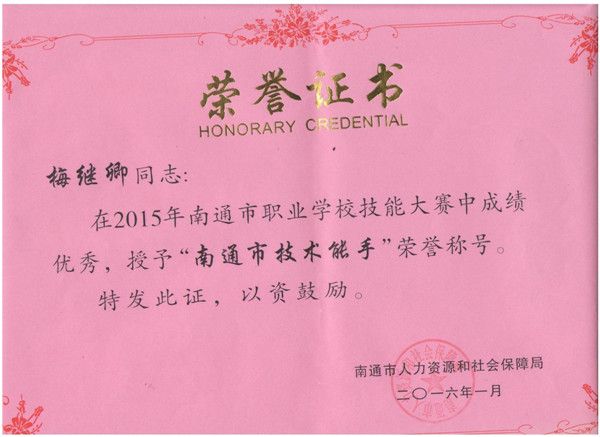 荣誉证书
HONORARY CREDENTIAL
梅继卿同志：
在2015年南通市职业学校技能大赛中成绩
优秀，授予“南通市技术能手”荣誉称号。
特发此证，以资鼓励。
南通市人力资源和社会保障局
二〇一六年一月